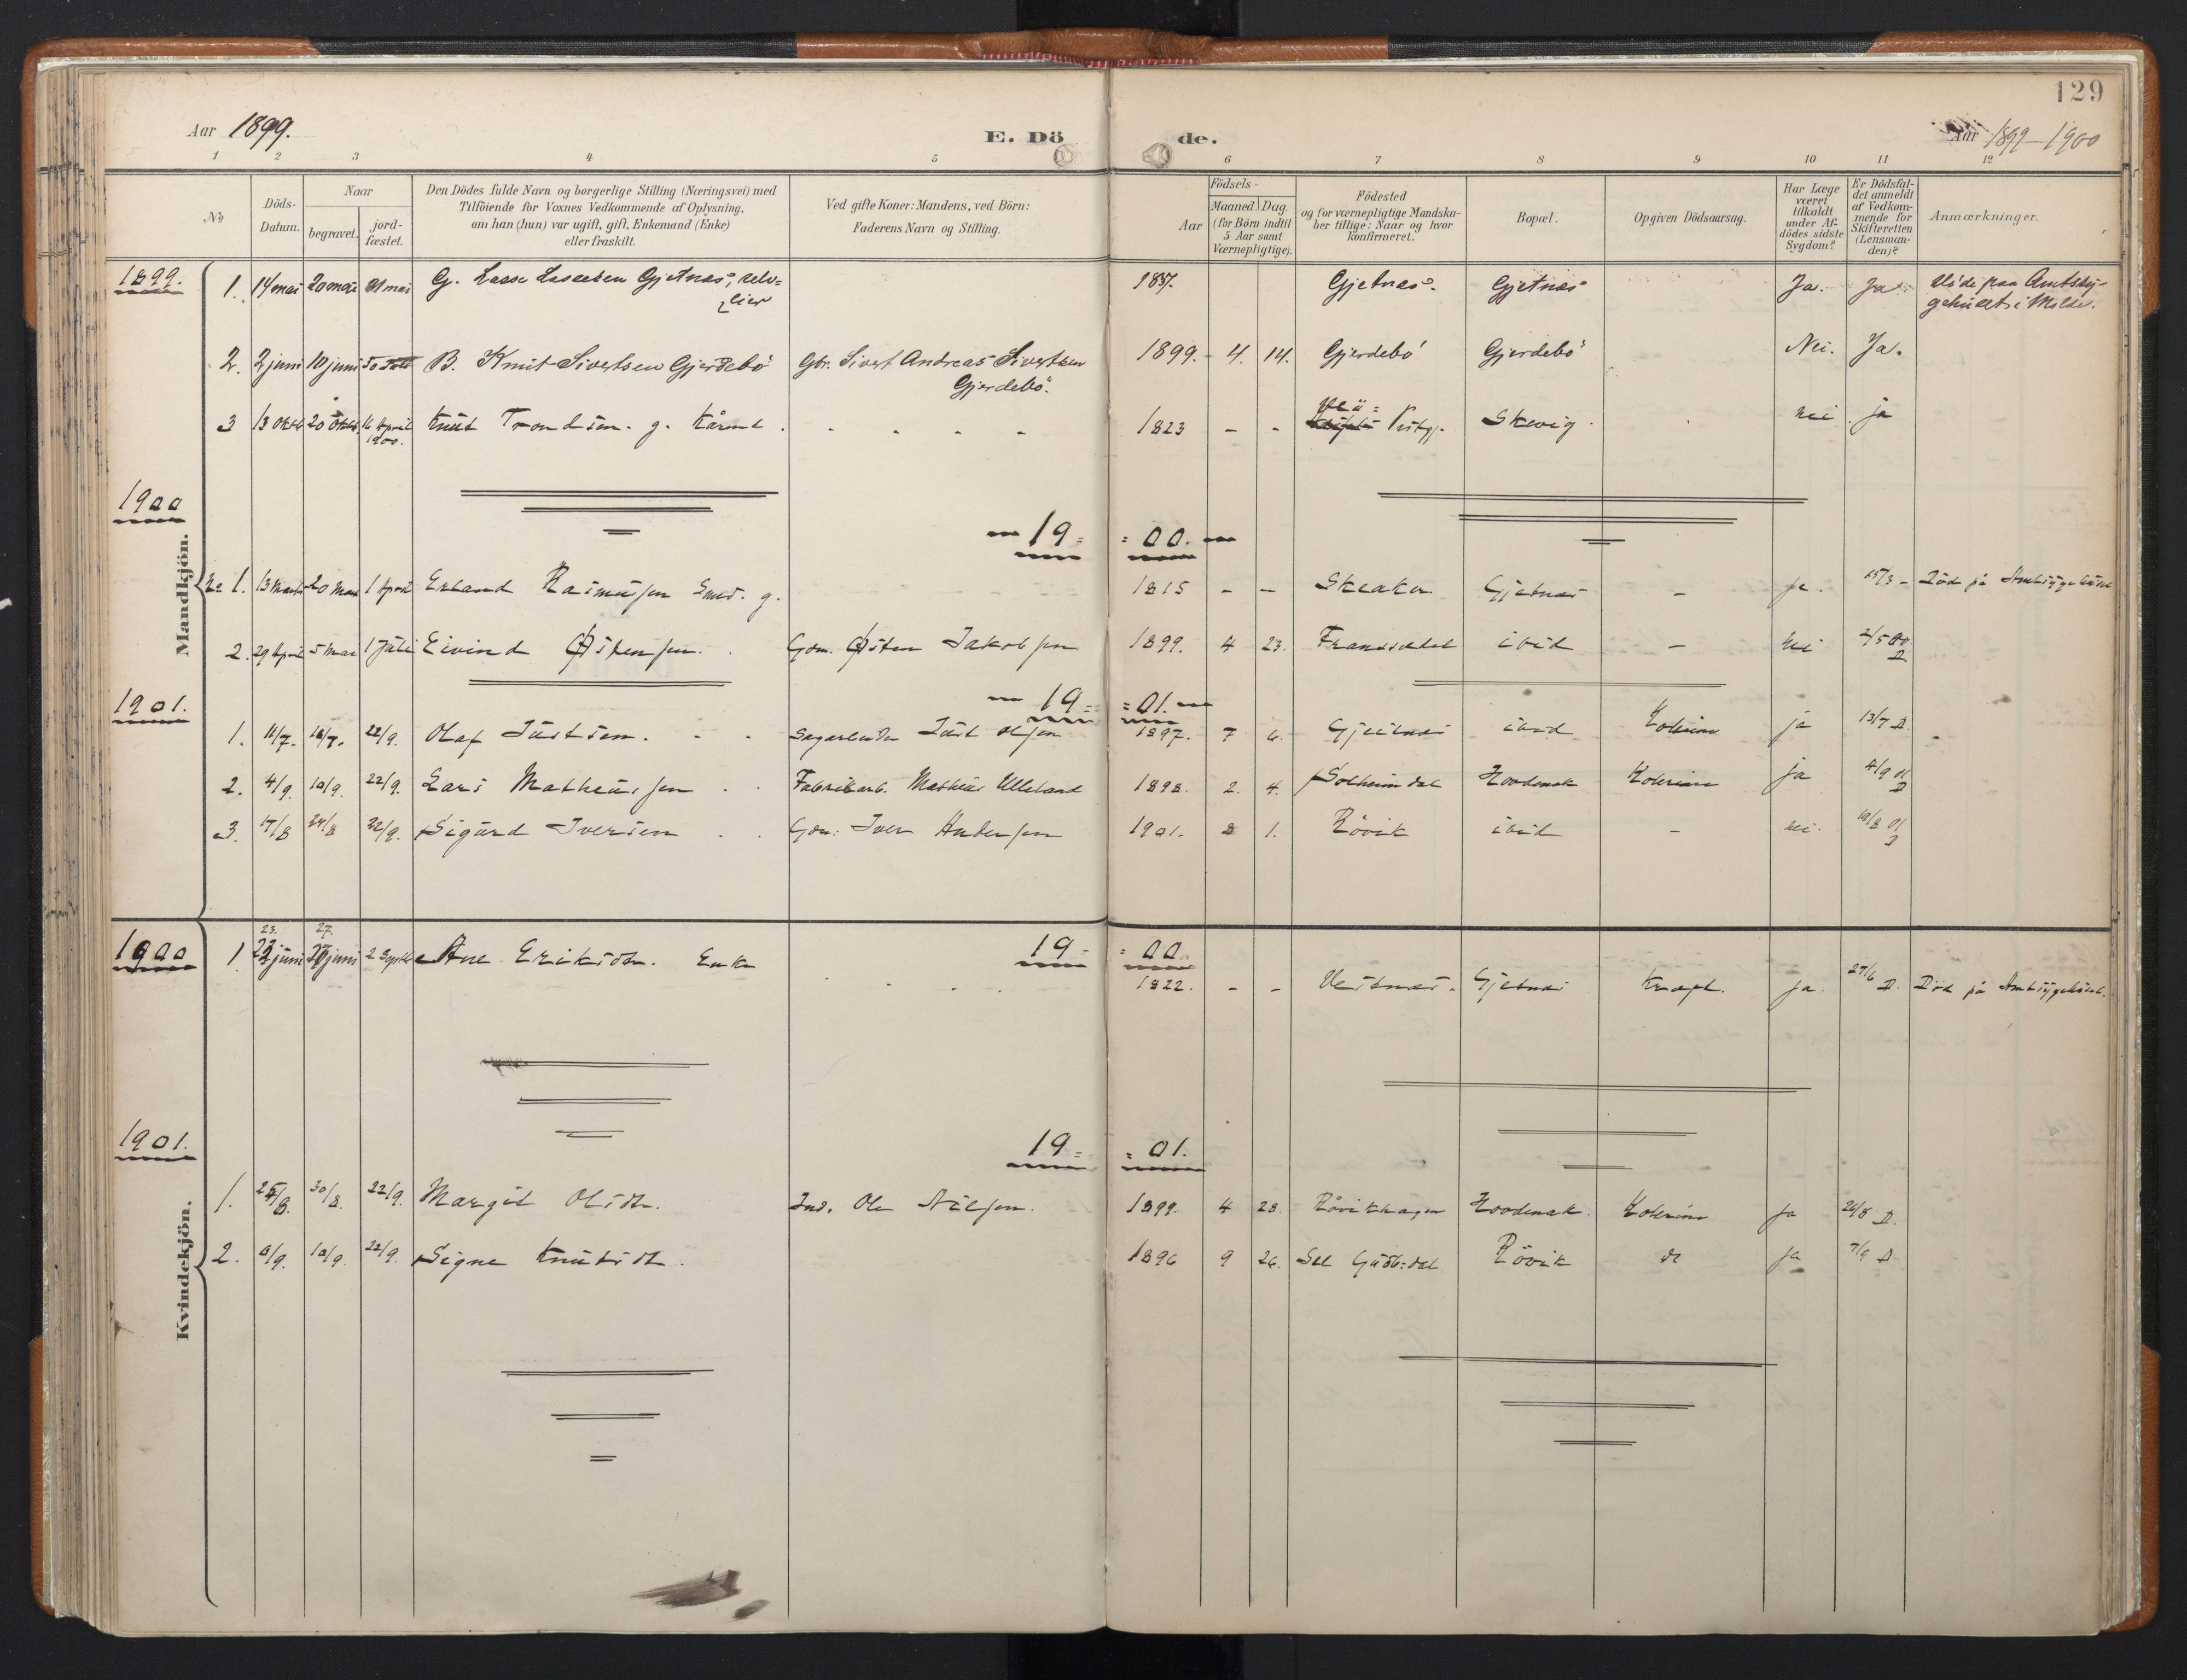 129
Aar 1899. E. Dö de. Aar 1899-1900
1 2 3 4 5 6 7 8 9 10 11 12
No
Döds-Datum.
Naar
begravet.
jord-fæstet.
Den Dödes fulde Navn og borgerlige Stilling (Næringsvei) med
Tilföiende for Voxnes Vedkommende af Oplysning,
om han (hun) var ugift, gift, Enkemand (Enke)
eller fraskilt.
Ved gifte Koner: Mandens, ved Börn:
Faderens Navn og Stilling.
Födsels-
Aar
Maaned. Dag.
(for Börn indtil
5 Aar samt
Værnepligtige).
Födested
og for værnepligtige Mandska-
ber tillige: Naar og hvor
konfirmeret.
Bopæl.
Opgiven Dödsaarsag.
Har Læge
været
tilkaldt
under Af-
dödes sidste
Sygdom?
Er Dödsfal-
det anmeldt
af Vedkom-
mende for
Skifteretten
(Lensman-
den)?
Anmærkninger.
Mandkjön.
1899.
1. 14 mai 20 mai 21 mai G. Lasse Lassesen Gjetnæs, selv-
eier 1837. Gjetnæs. Gjetnæs Ja. Ja. Döde paa Amtssy-
gehuset i Molde.
2. 2 juni 10 juni B. Knut Sivertsen Gjerdebö Gbr. Sivert Andreas Sivertsen
Gjerdebö. 1899. 4. 14. Gjerdebö Gjerdebö Nei. Ja.
3 13 Oktb 20 Oktb. 16 April
1900. Knut Trondsen. g. Kårmd - - - - 1823 - - Skevig. nei ja
1900
19 = = 00.
No 1. 13 Marts 20 Mars 1 April Erland Rasmussen Smed. g. 1815 - - Skeaker Gjetnæs - ja. 15/3 - Död på Amtssygehuset
2. 29 April 5 Mai 1 Juli Eivind Östensen. Gdm. Östen Jakobsen 1899. 4 23. Fransædet ibid - nei 2/5 00 D
1901.
19 = = 01.
1. 11/7. 18/7. 22/9. Olaf Justsen. Sagarbeider Just Olsen 1897. 7 6. Gjeitnæs ibid Kolerine ja 13/7 D. -
2. 4/9. 10/9. 22/9. Lars Matheussen Fabrikarb. Matheus Ulleland 1898. 2. 4. Solheimdal Hovdenak Kolerine ja 4/9 01 D
3. 17/8 24/8 22/9. Sigurd Iversen Gdm. Iver Andersen 1901. 8 1. Rövik ibid - nei. 19/8 01 D
Kvindekjön.
1900
19 = = 00
23. 27.
1 juni juni 2 Septb Ane Eriksdtr. Enke 1822. - - Vestnæs. Gjetnæs Kræft. ja. 27/6 D. Död på Amtssygehuset.
1901.
19 = = 01.
1. 25/8. 30/8. 22/9. Margit Olsdtr. Ind. Ole Nilsen. 1899. 4 28. Rövikhagen Hovdenak. Kolerine ja 26/8 D.
2. 6/9. 10/9. 22/9. Signe Knutsdtr. 1896 9 26. Sel Gudb:dal Rövik do ja 7/9 D